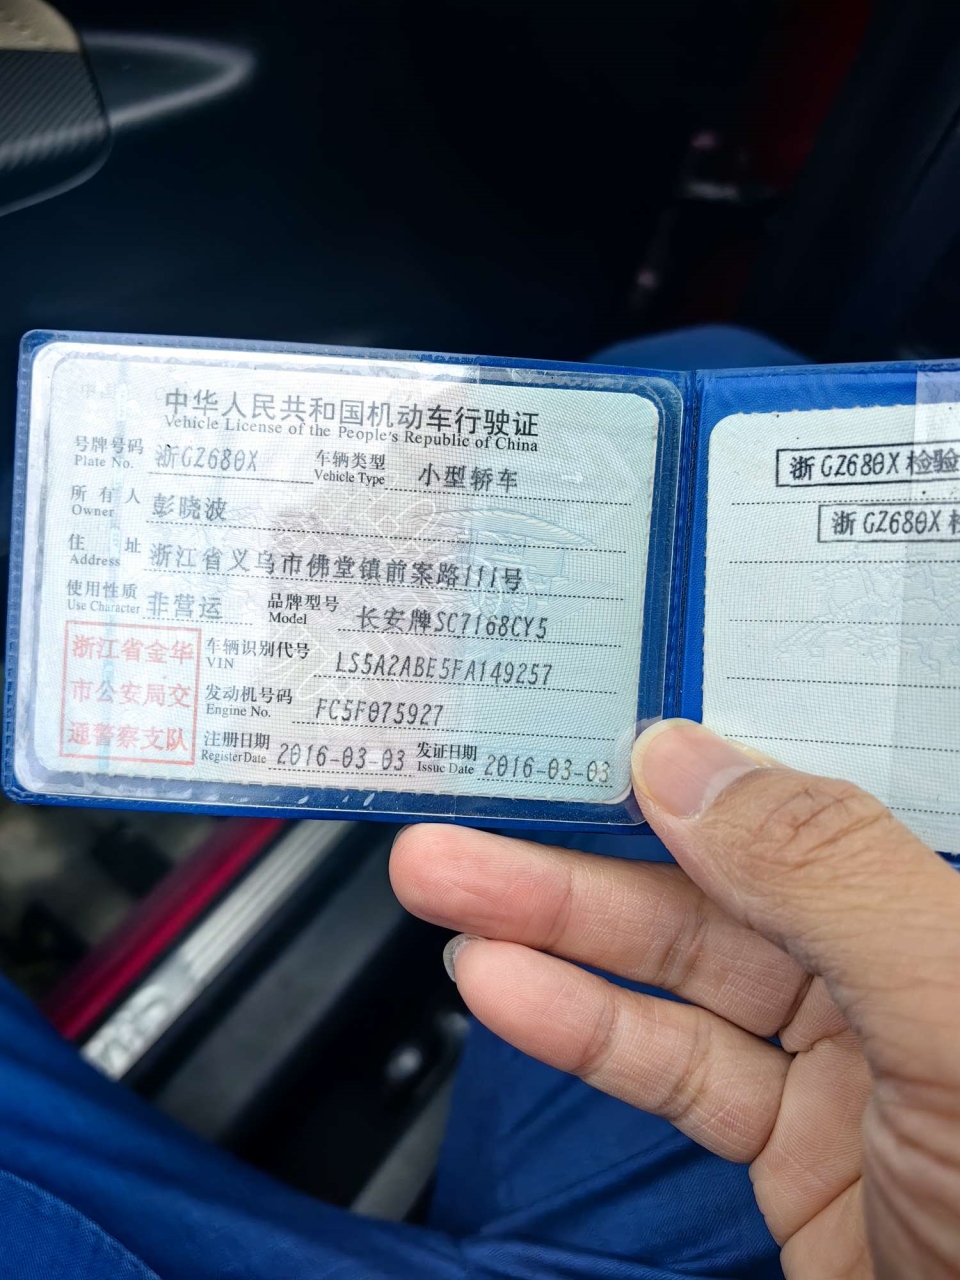 中华人民共和国机动车行驶证
Vehicle License of the People's Republic of China
号牌号码 浙GZ680X 车辆类型 小型轿车
Plate No. Vehicle Type
所有人 彭晓波
Owner
住址 浙江省义乌市佛堂镇前案路111号
Address
使用性质 非营运 品牌型号 长安牌SC7168CY5
Use Character Model
浙江省金华
市公安局交
通警察支队
车辆识别代号 LS5A2ABE5FA149257
VIN
发动机号码 FC5F075927
Engine No.
注册日期 2016-03-03 发证日期 2016-03-03
Register Date Issue Date
浙GZ680X检验
浙GZ680X